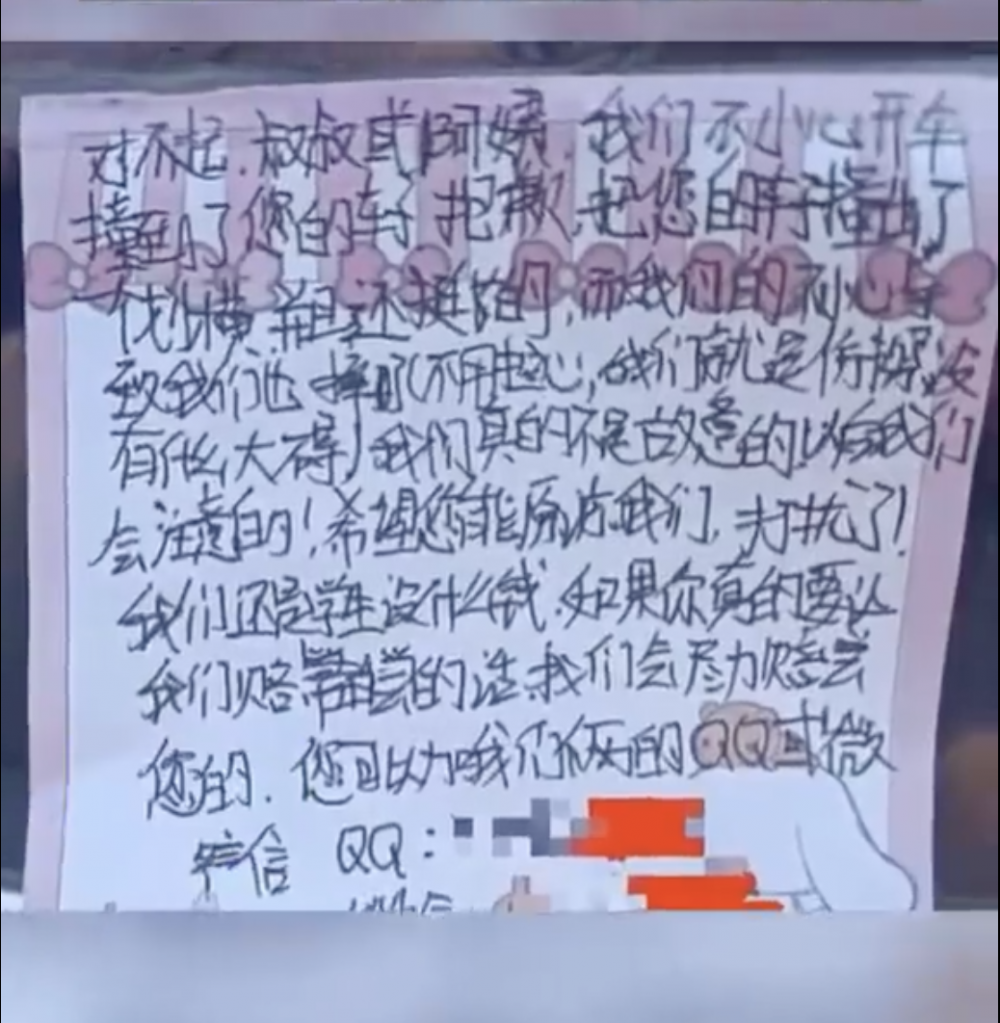 对不起.叔叔或阿姨.我们不小心开车
撞到了您的车子抱歉,把您的车子撞出了
横 并且还挺 的,而我们的不小心导
致我们也摔了(不用担心,我们就是 没
有什么大碍)我们真的不是故意的!以后我们
会注意的!希望您能原谅我们,打扰了!
我们还是学生没什么钱.如果你真的要让
我们赔偿的话.我们会尽力赔偿
您的.您可以加我们俩的QQ或微
信 QQ:
微信